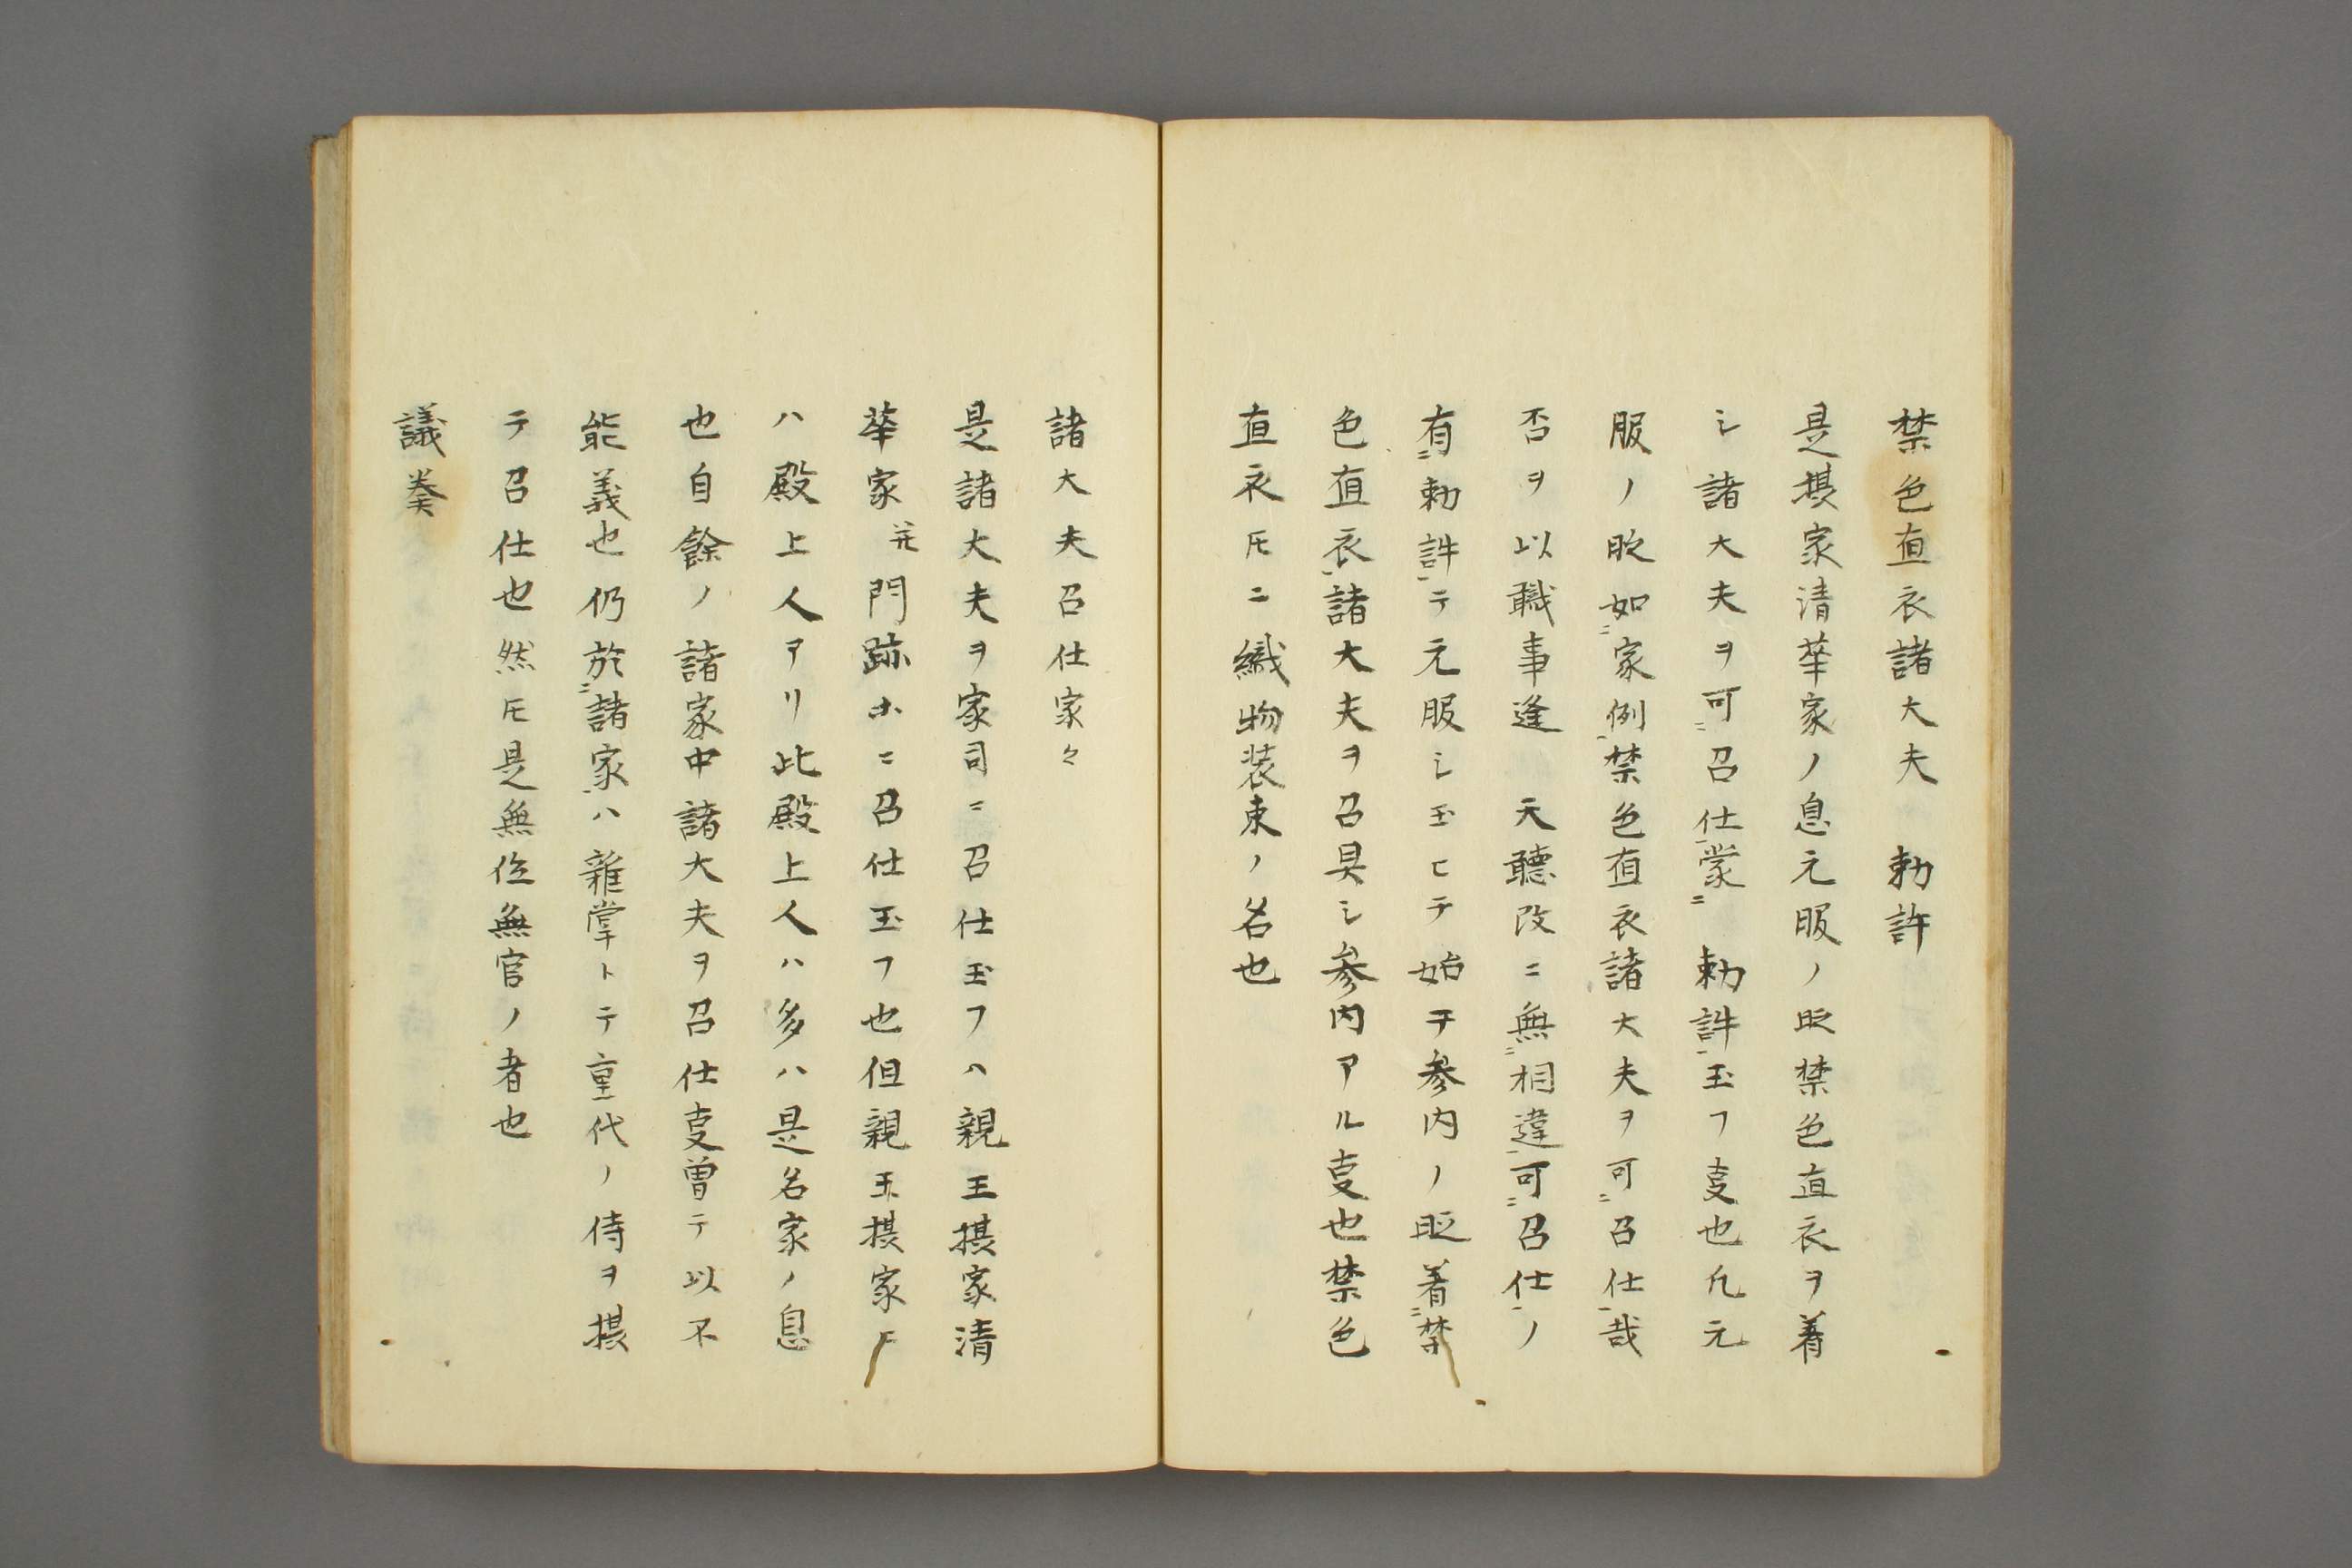 禁色直衣諸大夫　勅許
是摂家清華家ノ息元服ノ時禁色直衣ヲ着
シ諸大夫ヲ可ニ召仕一蒙ニ　勅許一玉フ㕝也凡元
服ノ時如ニ家例一禁色直衣諸大夫ヲ可ニ召仕一哉
否ヲ以職事逢　天聴改ニ無ニ相違一可ニ召仕一ノ
有ニ勅許一テ元服シ玉ヒテ始テ参内ノ時着ニ禁
色直衣一諸大夫ヲ召具シ参内アル㕝也禁色
直衣𪜈ニ織物装束ノ名也
諸大夫召仕家々
是諸大夫ヲ家司ニ召仕玉フハ親王摂家清
華家并門跡ホニ召仕玉フ也但親王摂家ニ
ハ殿上人アリ此殿上人ハ多ハ是名家ノ息
也自餘ノ諸家中諸大夫ヲ召仕㕝曽テ以不
能義也仍於ニ諸家一ハ雑掌トテ重代ノ侍ヲ撰
テ召仕也然𪜈是無位無官ノ者也
議奏